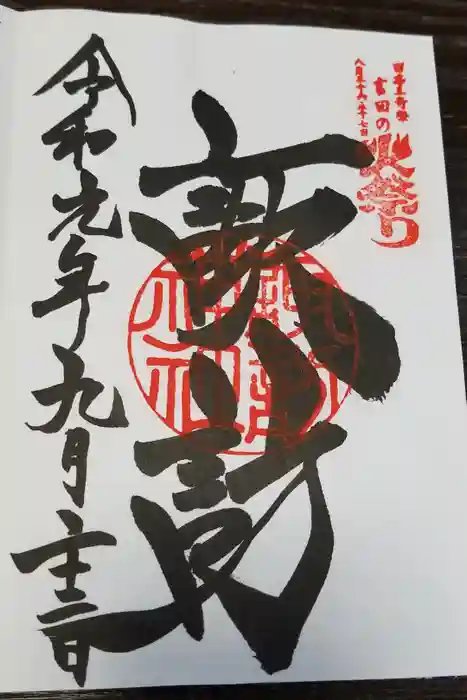 日本三奇祭
吉田の火祭り
八月二十六日・二十七日
諏訪
諏訪神社
令和元年九月